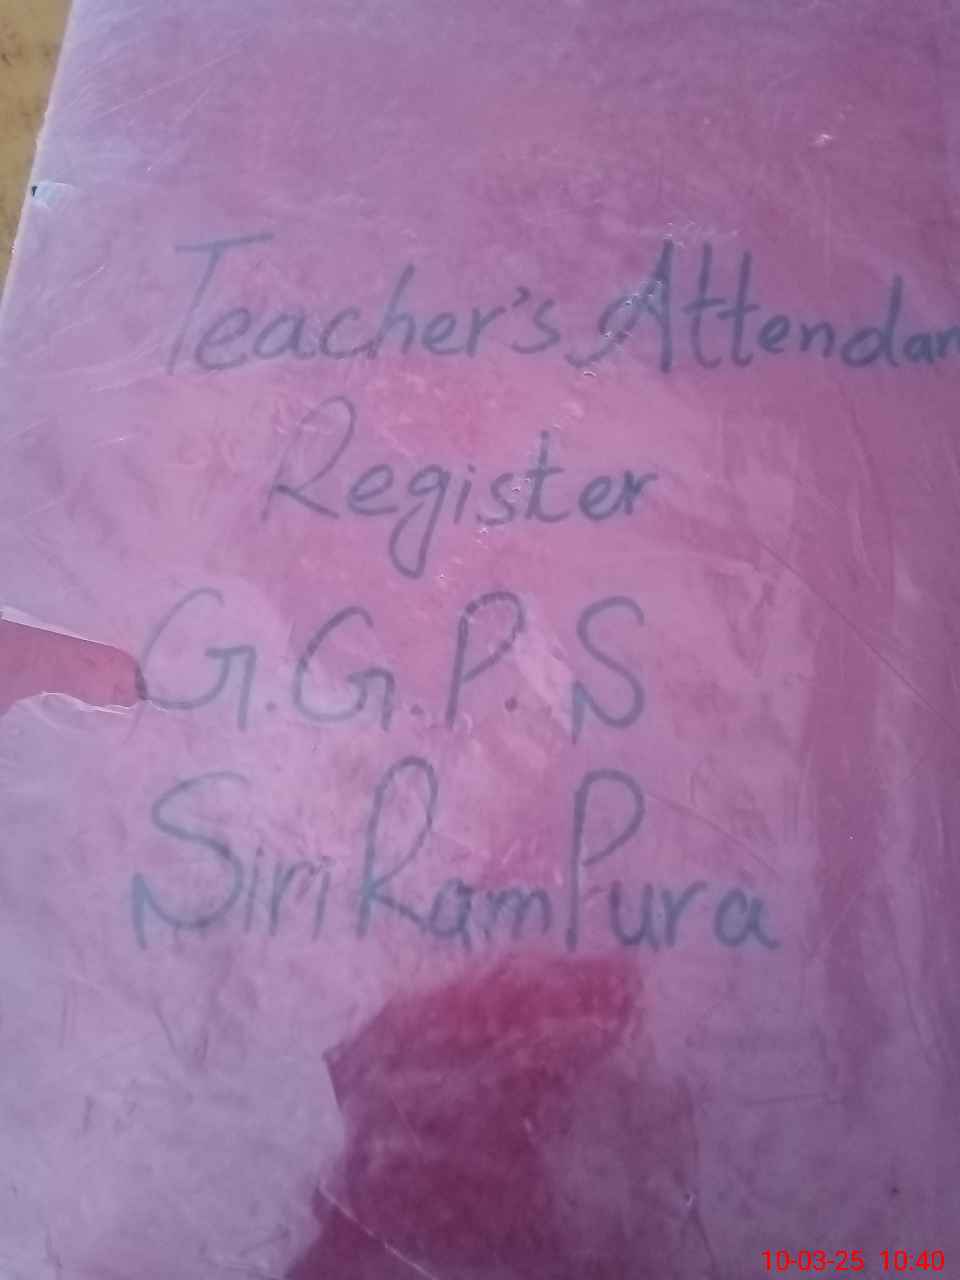 Teacher's Attendan
Register
G.G.P.S
Siri RamPura
10-03-25 10:40